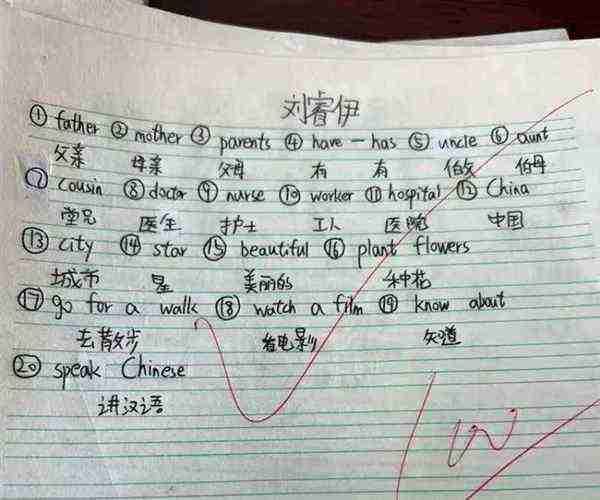 刘睿伊
① father ② mother ③ parents ④ have — has ⑤ uncle ⑥ aunt
父亲 母亲 父母 有 有 伯父 伯母
⑦ cousin ⑧ doctor ⑨ nurse ⑩ worker ⑪ hospital ⑫ China
堂兄 医生 护士 工人 医院 中国
⑬ city ⑭ star ⑮ beautiful ⑯ plant flowers
城市 星 美丽的 种花
⑰ go for a walk ⑱ watch a film ⑲ know about
去散步 看电影 知道
⑳ speak Chinese
讲汉语